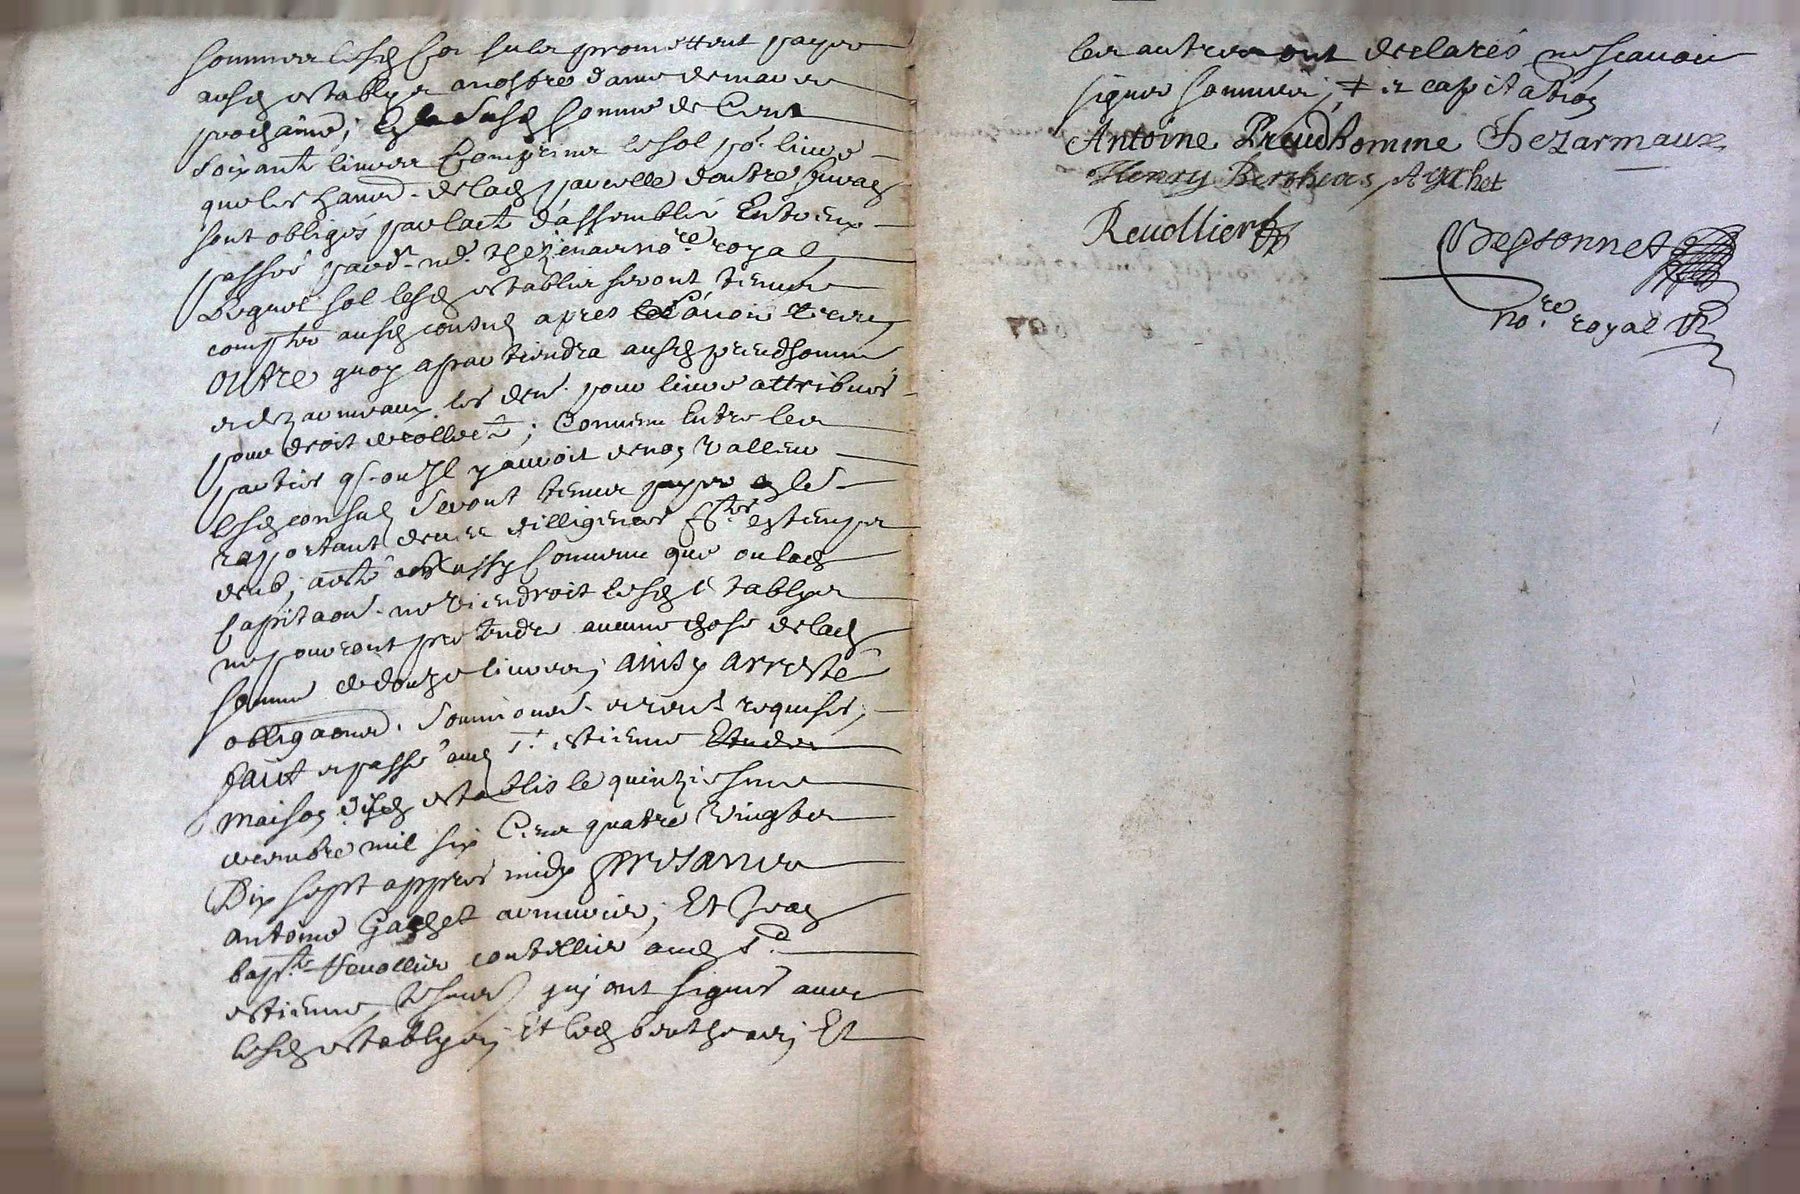 sommer lesd consulz promettent payer
ausd establys a nostre dame de mars
prochaine; Et la susd somme de Cent
soixante livres Comprins le sol po.r livre
que les hans de lad parcelle doutre furan
sont obligés par lact d'assemblée Entreux
passée pard.t me. thezenas no.re royal
Duquel sol lesd establis seront tenus
compter ausd consulz apres l'avoir Exere
OUtre quoy apartiendra ausd preudhomme
et dezarmaux les den. pour livre attribués
pour droit de collecte; Convenu Entre les
parties q. ou Il y auroit de non valleur
lesd consulz seront tenus payer en le
rapportant deues dilligences f.tes en temps
deub; a esté aussy Convenu que ou lad
Capitaon. ne viendroit lesd establys
ne pourront pretendre aucune chose de lad
somme de douze livres; ainsy arresté
obligaons. soumions. et renz. requises;
fait et passé aud S.t estienne Etude
maison desd establis le quinziesme
decembre mil six Cens quatre Vingts
Dix sept appres midy presances
antoine Gachet armurier; Et Jean
bap.te Revollier coutellier aud S.t
estienne tesmoins quy ont signés avec
lesd establys; Et led bertheas; Et
les autres ont declarés ne scavoir
signer sommes; ≠ et capitation
Antoine Preudhomme Dezarmaux
Henry Bertheas, A gachet
Revollier
Bessonnet
no.re royal R